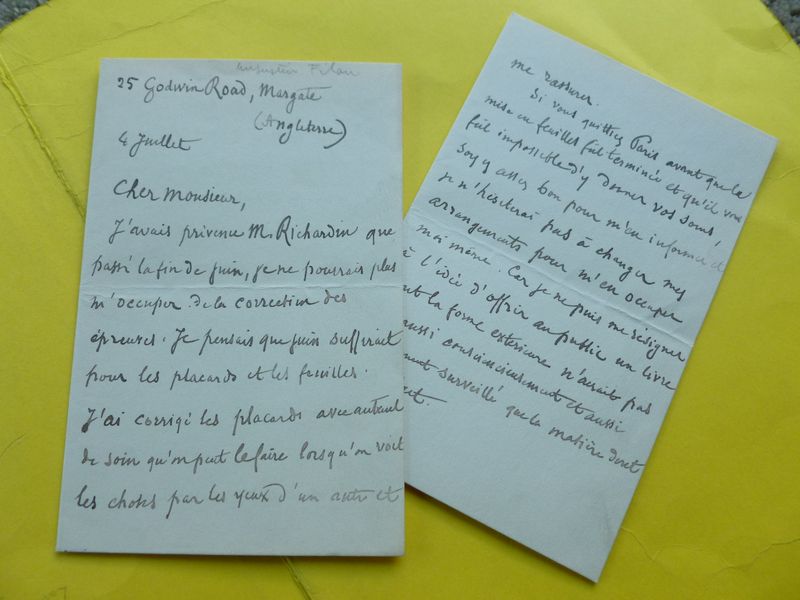 Augustin Filon
25 Godwin Road, Margate
(Angleterre)
4 Juillet
Cher Monsieur,
J'avais prévenu M. Richardin que
passé la fin de juin, je ne pourrais plus
m'occuper de la correction des
épreuves. Je pensais que juin suffirait
pour les placards et les feuilles.
J'ai corrigé les placards avec autant
de soin qu'on peut le faire lorsqu'on voit
les choses par les yeux d'un autre et
me rassurer.
Si vous quittiez Paris avant que la
mise en feuilles fût terminée et qu'il vous
fût impossible d'y donner vos soins,
soyez assez bon pour m'en informer et
je n'hésiterai pas à changer mes
arrangements pour m'en occuper
moi même. Car je ne puis me résigner
à l'idée d'offrir au public un livre
la forme extérieure n'aurait pas
aussi consciencieusement et aussi
surveillé que la matière